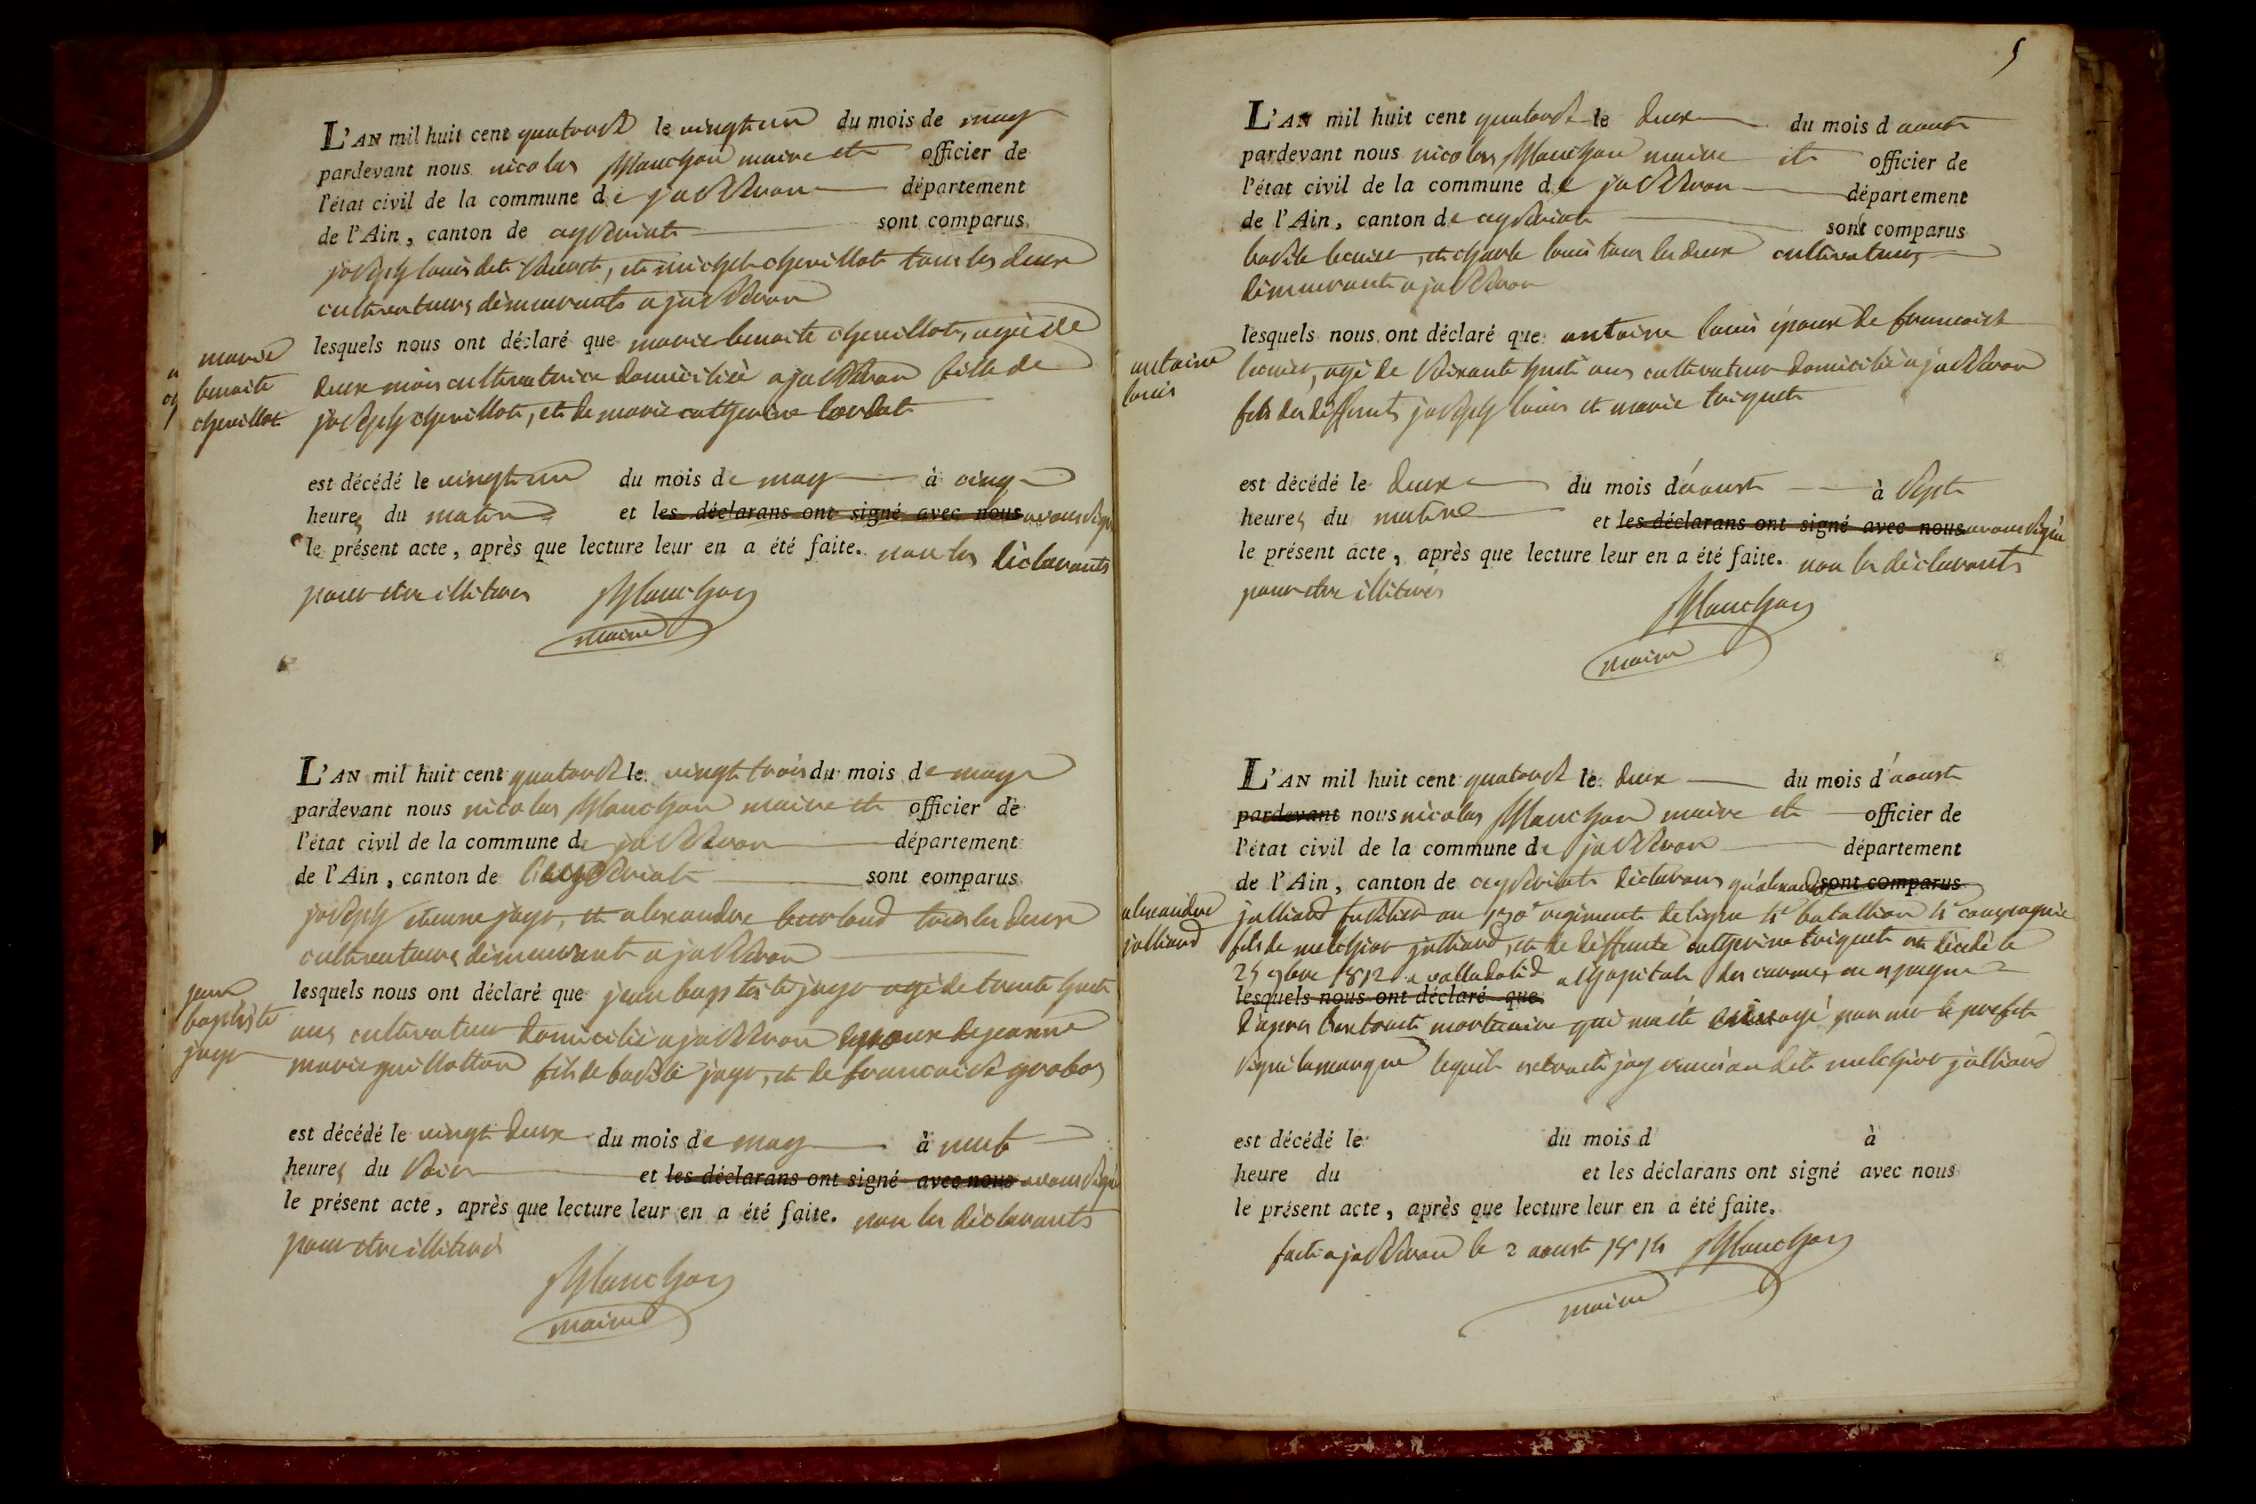 L'AN mil huit cent quatorse le vingt un du mois de may
pardevant nous nicolas Planchon maire et officier de
l'état civil de la commune de jasseron département
de l'Ain, canton de ceyseriat sont comparus
joseph louis dit, et michel chevillot tous les deux
cultivateurs demeurants a jasseron
lesquels nous ont déclaré que marie benoite chevillot, agé de
deux mois cultivatrice domiciliée a jasseron fille de
joseph chevillot, et de marie catherine
marie
benoite
chevillot
est décédé le vingt un du mois de may à cinq
heures du matin et les déclarans ont signé avec nous avons signé
le présent acte, après que lecture leur en a été faite. non les déclarants
pour etre illiteres Planchon
maire
L'AN mil huit cent quatorse le vingt trois du mois de may
pardevant nous nicolas Planchon maire et officier de
l'état civil de la commune de jasseron département
de l'Ain, canton de ceyseriat sont comparus
joseph etienne jayr, et alexandre tous les deux
cultivateurs demeurant a jasseron
lesquels nous ont déclaré que jean baptiste jayr agé de trente huit
ans cultivateur domicilié a jasseron epoux de jeanne
marie guillotton fils de basile jayr, et de francoise grobos
jean
baptiste
jayr
est décédé le vingt deux du mois de may à neuf
heures du soir et les déclarans ont signé avec nous avons signé
le présent acte, après que lecture leur en a été faite. non les déclarants
pour etre illiterés
Planchon
maire
5
L'AN mil huit cent quatorse le deux du mois d aoust
pardevant nous nicolas Planchon maire et officier de
l'état civil de la commune de jasseron département
de l'Ain, canton de ceyseriat sont comparus
basile, et charle louis tous les deux cultivateurs
demeurants a jasseron
lesquels nous ont déclaré que antoine louis époux de francoise
agé de soixante huit ans cultivateur domicilié a jasseron
fils des deffunts joseph louis et marie triquet
antoine
louis
est décédé le deux du mois d'aoust à sept
heures du matin et les déclarans ont signé avec nous avons signé
le présent acte, après que lecture leur en a été faite. non les déclarants
pour etre illiterés
Planchon
maire
L'AN mil huit cent quatorse le deux du mois d'aoust
pardevant nous nicolas Planchon maire et officier de
l'état civil de la commune de jasseron département
de l'Ain, canton de ceyseriat déclarons qu'alexandre sont comparus
julliard fusilier au 130e regiment de ligne 4e batallion 4e compagnie
fils de melchior julliard, et de deffunte catherine triquet est décédé le
25 9bre 1812 a valladolid a l'hopital des carmes en espagne
lesquels nous ont déclaré que
d'apres l'extrait mortuaire qui m'a été envoyé par mr le prefet
lequel extrait jay remis au dit melchior julliard
alexandre
julliard
est décédé le du mois d à
heure du et les déclarans ont signé avec nous
le présent acte, après que lecture leur en a été faite.
fait a jasseron le 2 aoust 1814 Planchon
maire